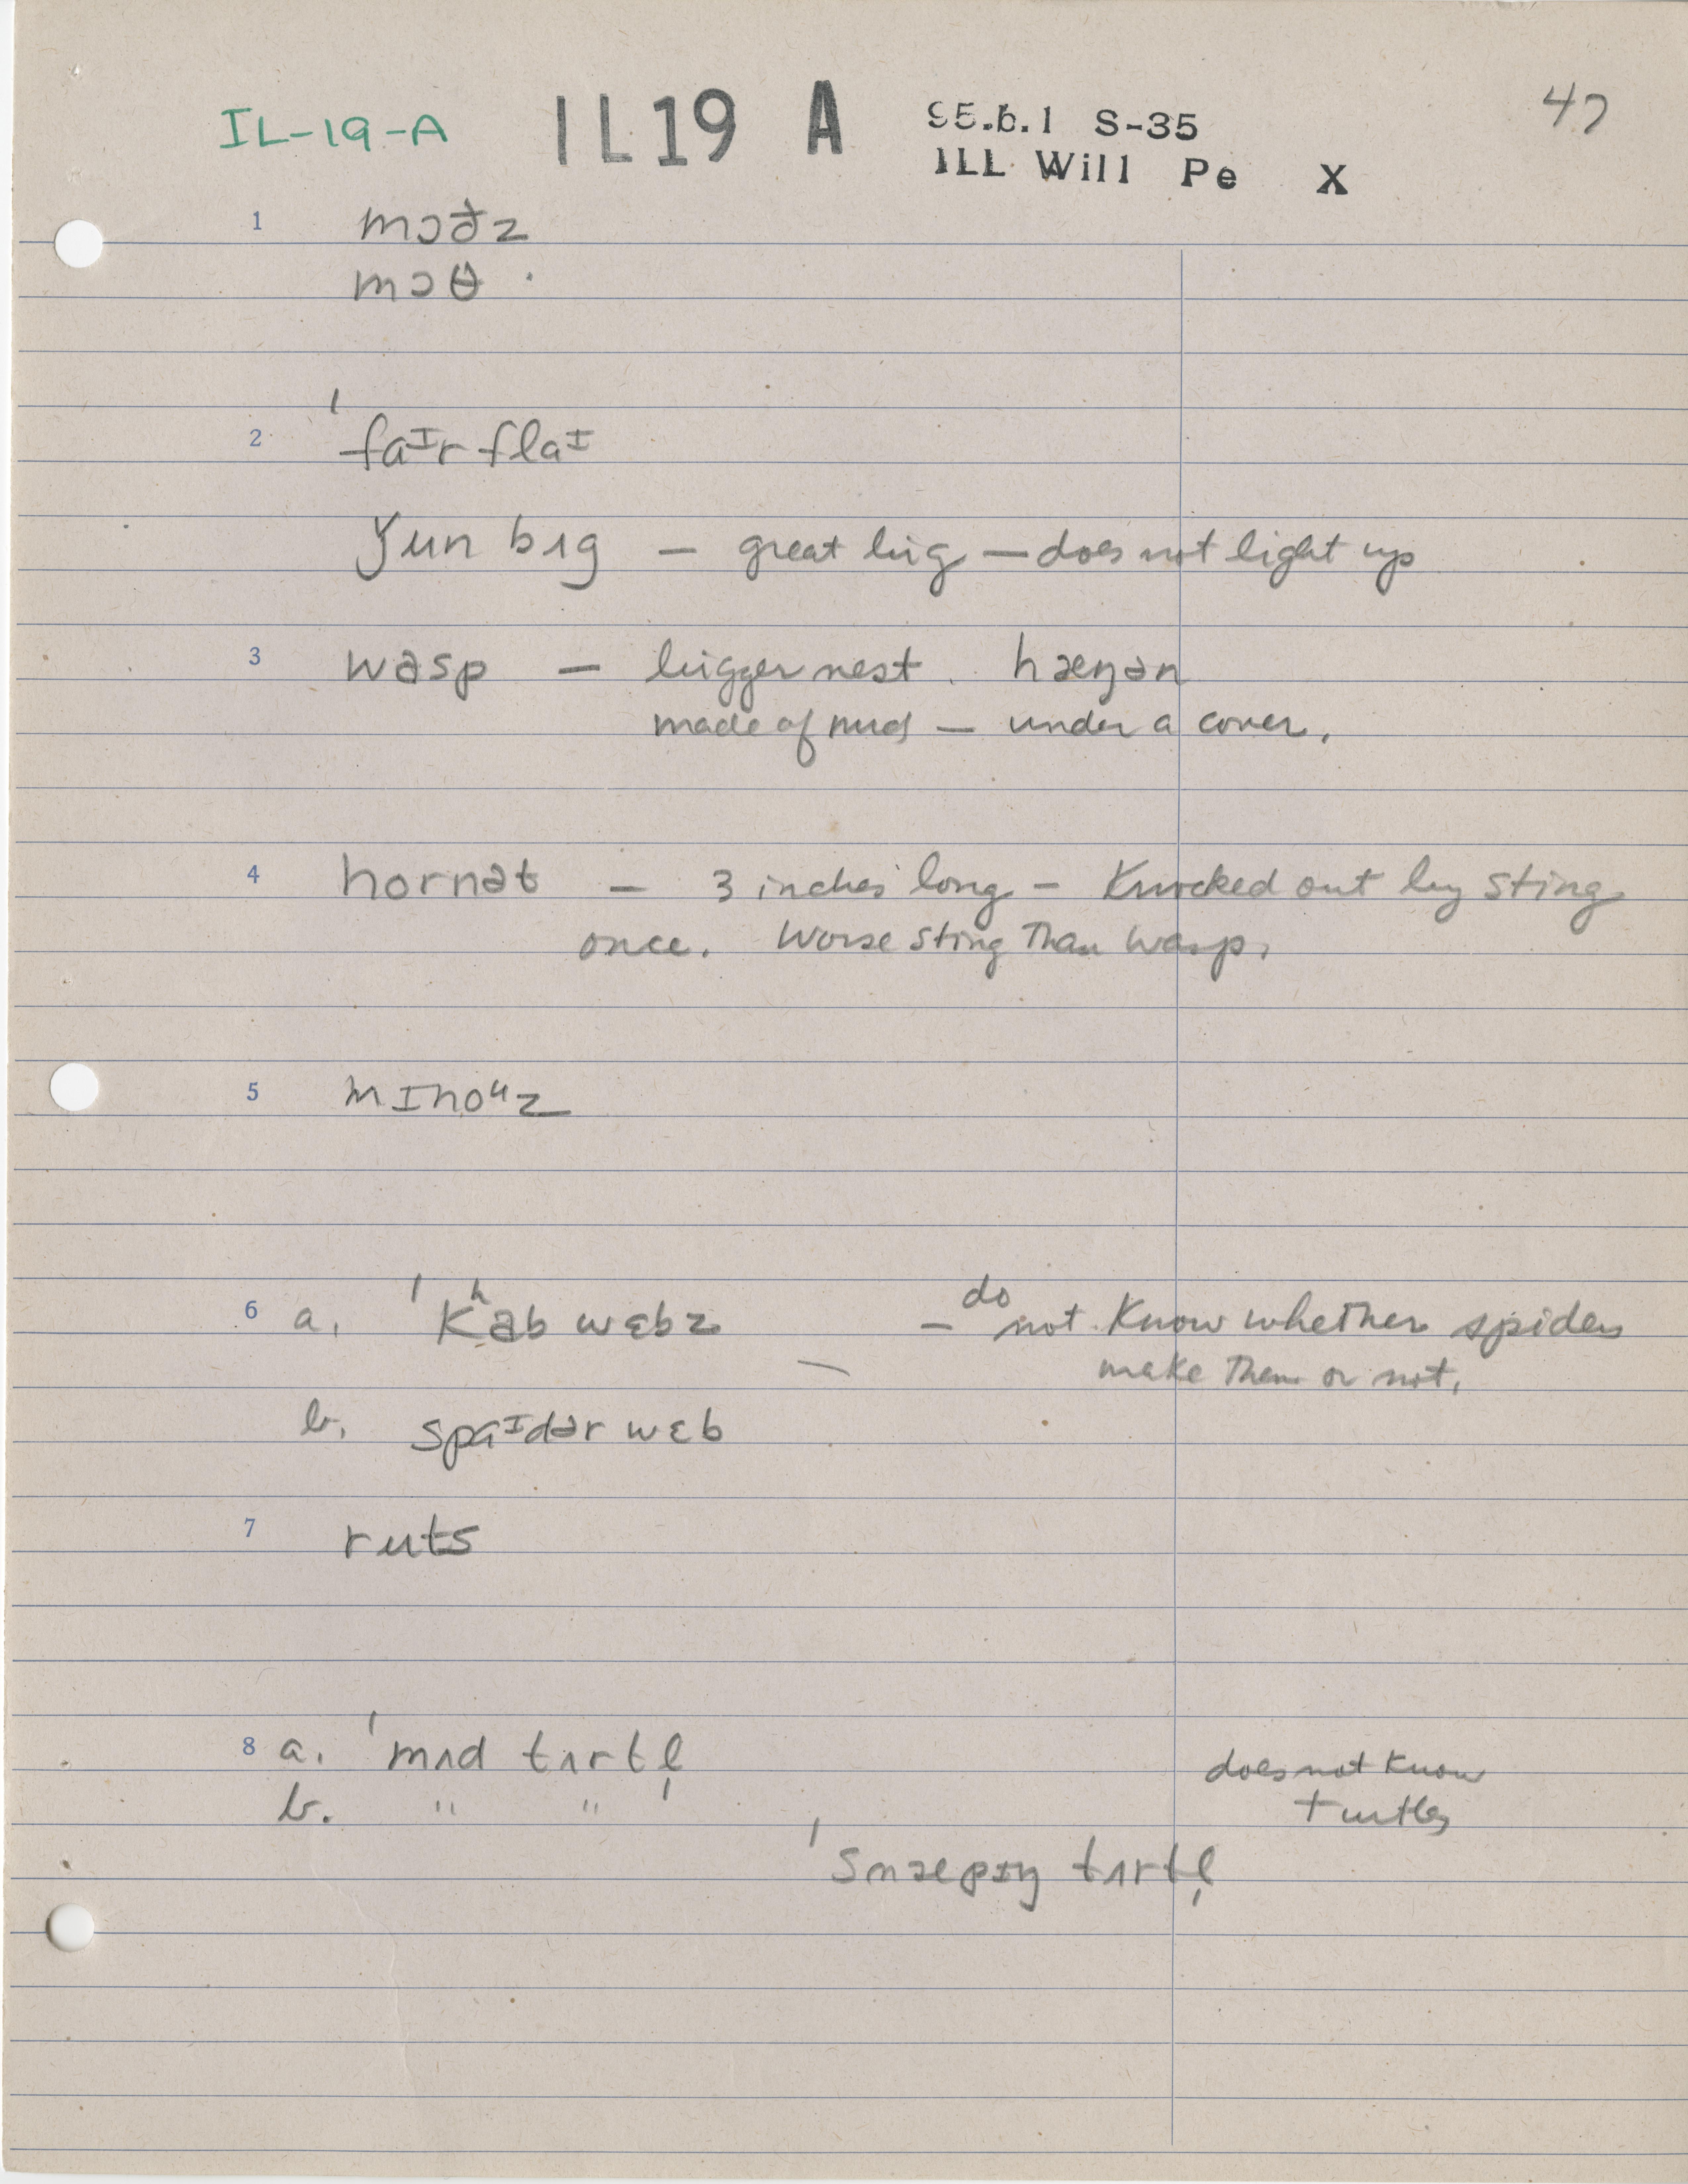 IL-19-A IL19 A 95.6.1 S-35 47
ILL Will Pe X
1 mɔðz
mɔθ
2 ˈfaᶦr flaᶦ
ǰun bɪg — great big — does not light up
3 wasp — bigger nest. hæŋən
made of mud — under a cover.
4 hornət — 3 inches long — Knocked out by sting
once. Worse sting than wasp.
5 mɪnoᵘz
6 a. ˈkʰab wɛbz — do not Know whether spiders
make them or not.
b. spaᶦdər wɛb
7 ruts
8 a. ˈmʌd tʌrtl̩ does not Know
b. " " turtles
ˈsnæpɪŋ tʌrtl̩